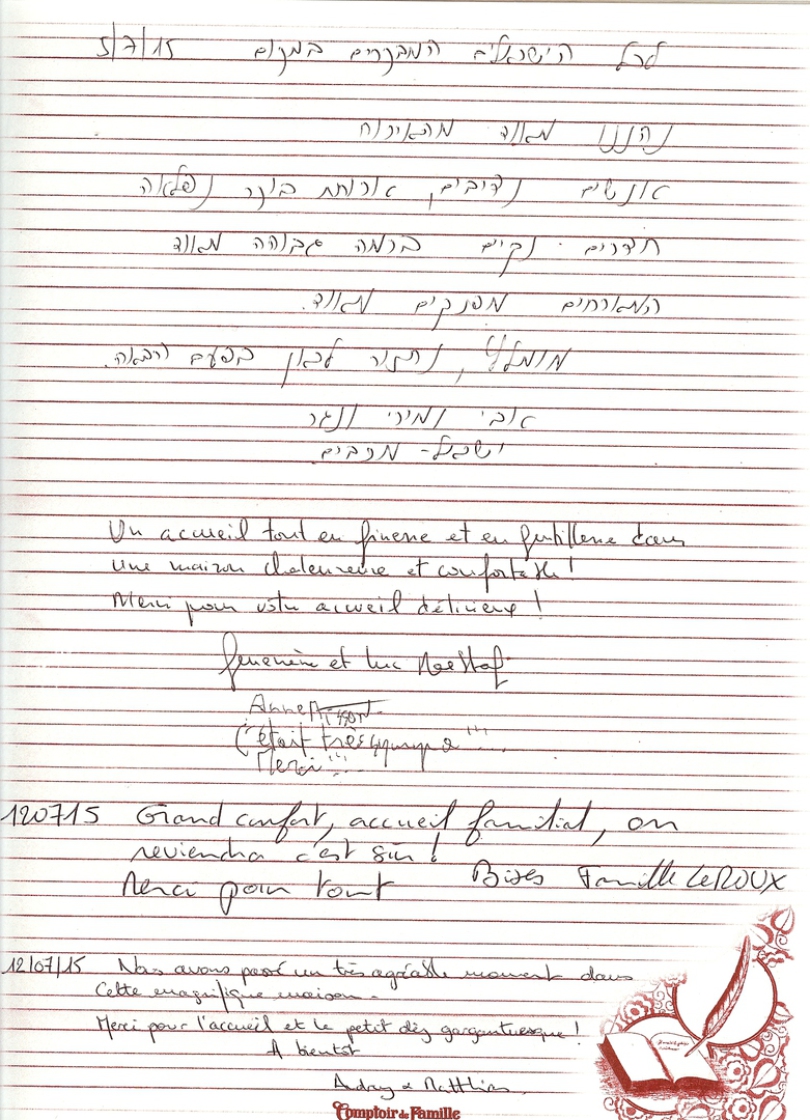 לכל הישראלים המבקרים במקום 5/7/15
נהננו מאוד מהאירוח
אנשים נדיבים, ארוחת בוקר נפלאה
חדרים נקיים ברמה גבוהה מאוד
המארחים מפנקים מאוד.
מומלץ, נחזור לכאן בפעם הבאה.
אבי ומירי ונגר
ישראל - מכבים
Un accueil tout en finesse et en gentillesse dans
une maison chaleureuse et confortable !
Merci pour votre accueil délicieux !
et Luc
Anne
C'était très sympa !!!
Merci !!!
120715 Grand confort, accueil familial, on
reviendra c'est sûr !
Merci pour tout Bises Famille LEROUX
12/07/15 Nous avons passé un très agréable moment dans
cette magnifique maison.
Merci pour l'accueil et le petit déj gargantuesque !
A bientôt
Audrey & Matthias
Comptoir de Famille